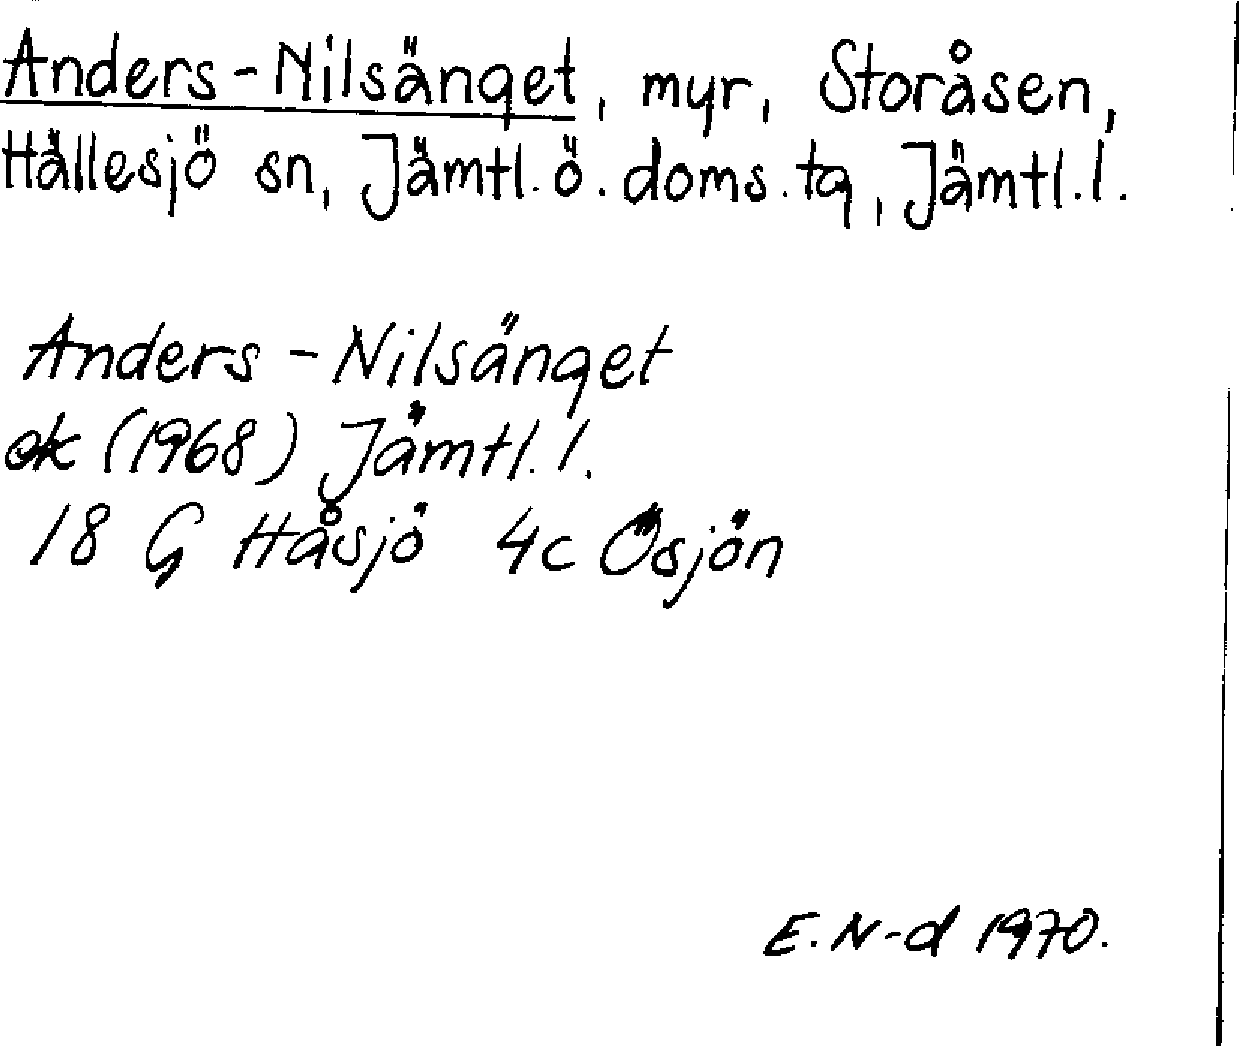 Anders-Nilsänget, myr, Storåsen,
Hällesjö sn, Jämtl. ö. doms. tg, Jämtl. l.
Anders-Nilsänget
ek (1968) Jämtl. l.
18 G Håsjö 4c Ösjön
E. N-d 1970.